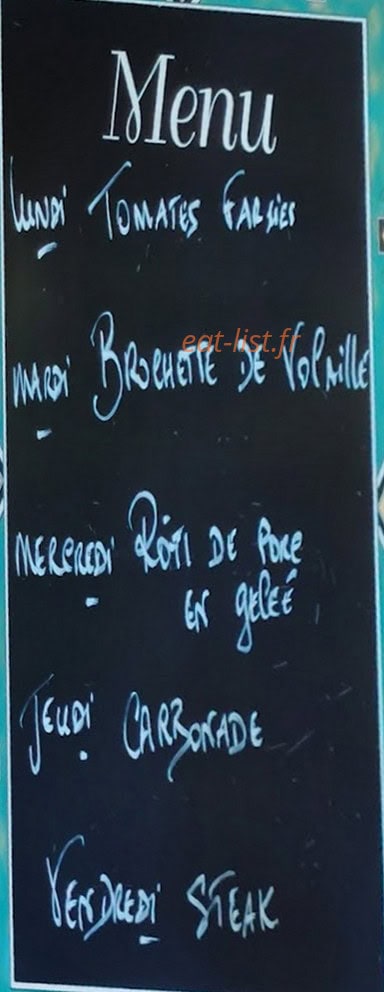 Menu
Lundi Tomates Farsies
eat-list.fr
Mardi Brochette de Volaille
Mercredi Rôti de Porc
en geleé
Jeudi Carbonade
Vendredi Steak